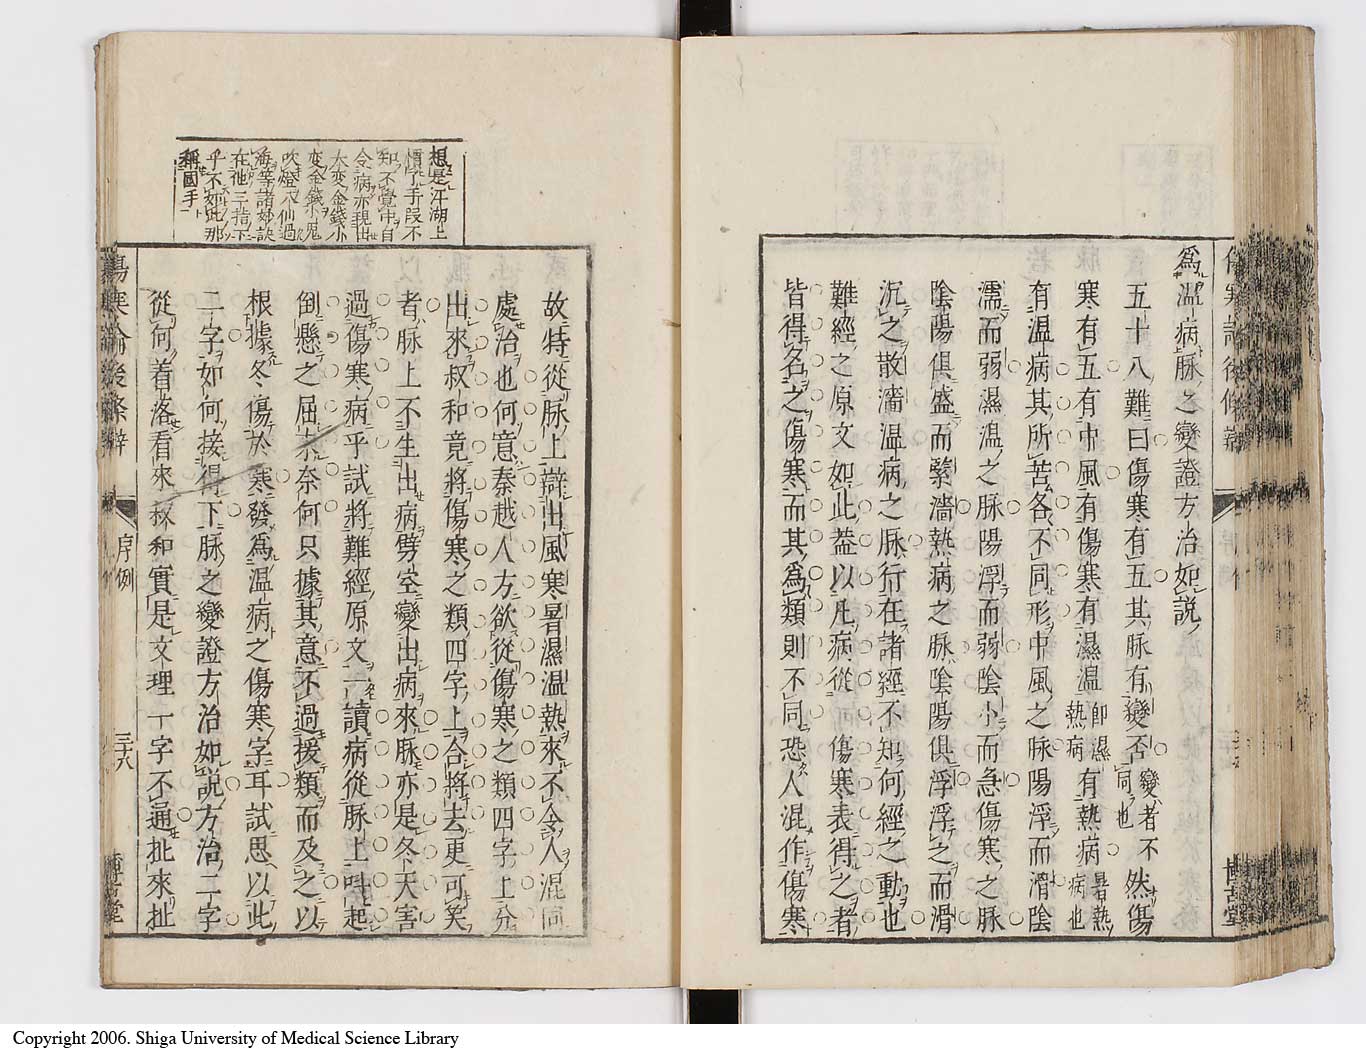 爲溫病脉之變證方治如說
五十八難曰傷寒有五其脉有變否變者不同也然傷
寒有五有中風有傷寒有濕溫卽濕熱病有熱病暑熱病也
有溫病其所苦各不同形中風之脉陽浮而滑陰
濡而弱濕溫之脉陽浮而弱陰小而急傷寒之脉
陰陽俱盛而緊濇熱病之脉陰陽俱浮浮之而滑
沉之散濇溫病之脉行在諸經不知何經之動也
難經之原文如此葢以凡病從傷寒表得之者
皆得名之傷寒而其爲類則不同恐人混作傷寒
故特從脉上辯出風寒暑濕溫熱來不令人混同
處治也何意秦越人方欲從傷寒之類四字上分
出來叔和竟將傷寒之類四字上合將去更可笑
者脉上不生出病劈空變出病來脉亦是冬天害
過傷寒病乎試將難經原文一讀病從脉上呌起
倒懸之屈奈何只據其意不過援類而及之以
根據冬傷於寒發爲溫病之傷寒字耳試思以此
二字如何接得下脉之變證方治如說方治二字
從何着落看來叔和實是文理一字不通扯來扯
想是江湖上
慣了手段不
知不覺中自
令病亦現出
大變金錢小
變金錢小鬼
吹燈八仙過
海等諸妙訣
在他三指下
乎不如此那
稱國手
傷寒論後條辯
序例
三十六
博古堂
博古堂
Copyright 2006. Shiga University of Medical Science Library